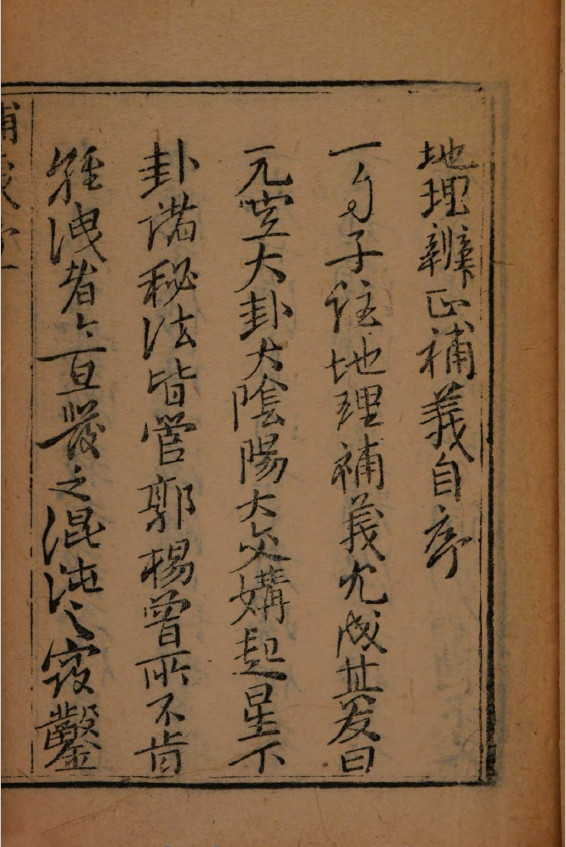 地理辨正補義自序
一勺子註地理補義成其友曰
元空大卦大陰陽大交媾起星下
卦諸秘法皆管郭楊曾所不肯
輕洩者今直發之混沌之竅鑿